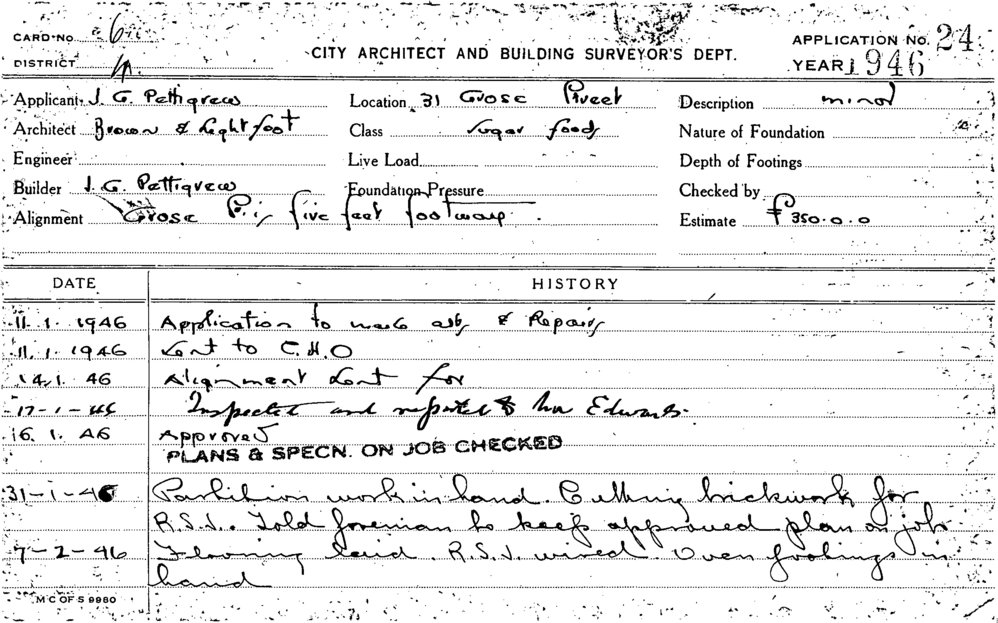 CARD No 6
DISTRICT
CITY ARCHITECT AND BUILDING SURVEYOR'S DEPT.
APPLICATION No. 24
YEAR 1946
Applicant J. G. Pettigrew
Location 31 Grose Street
Description minor
Architect Brown & Lightfoot
Class Sugar foods
Nature of Foundation
Engineer
Live Load
Depth of Footings
Builder J. G. Pettigrew
Foundation Pressure
Checked by
Alignment Grose five feet footway.
Estimate £350.0.0
DATE
HISTORY
11.1.1946 Application to make alts & Repairs
11.1.1946 Sent to C.H.O
14.1.46 Alignment Sent for
17-1-46 Inspected and reported to Mr Edwards.
16.1.46 Approved
PLANS & SPECN. ON JOB CHECKED
31-1-46 Partition work in hand. Cutting brickwork for
R.S.J. Told foreman to keep approved plan on job
7-2-46 Flooring laid. R.S.J. wired Oven footings in
hand
M C OF S 9980